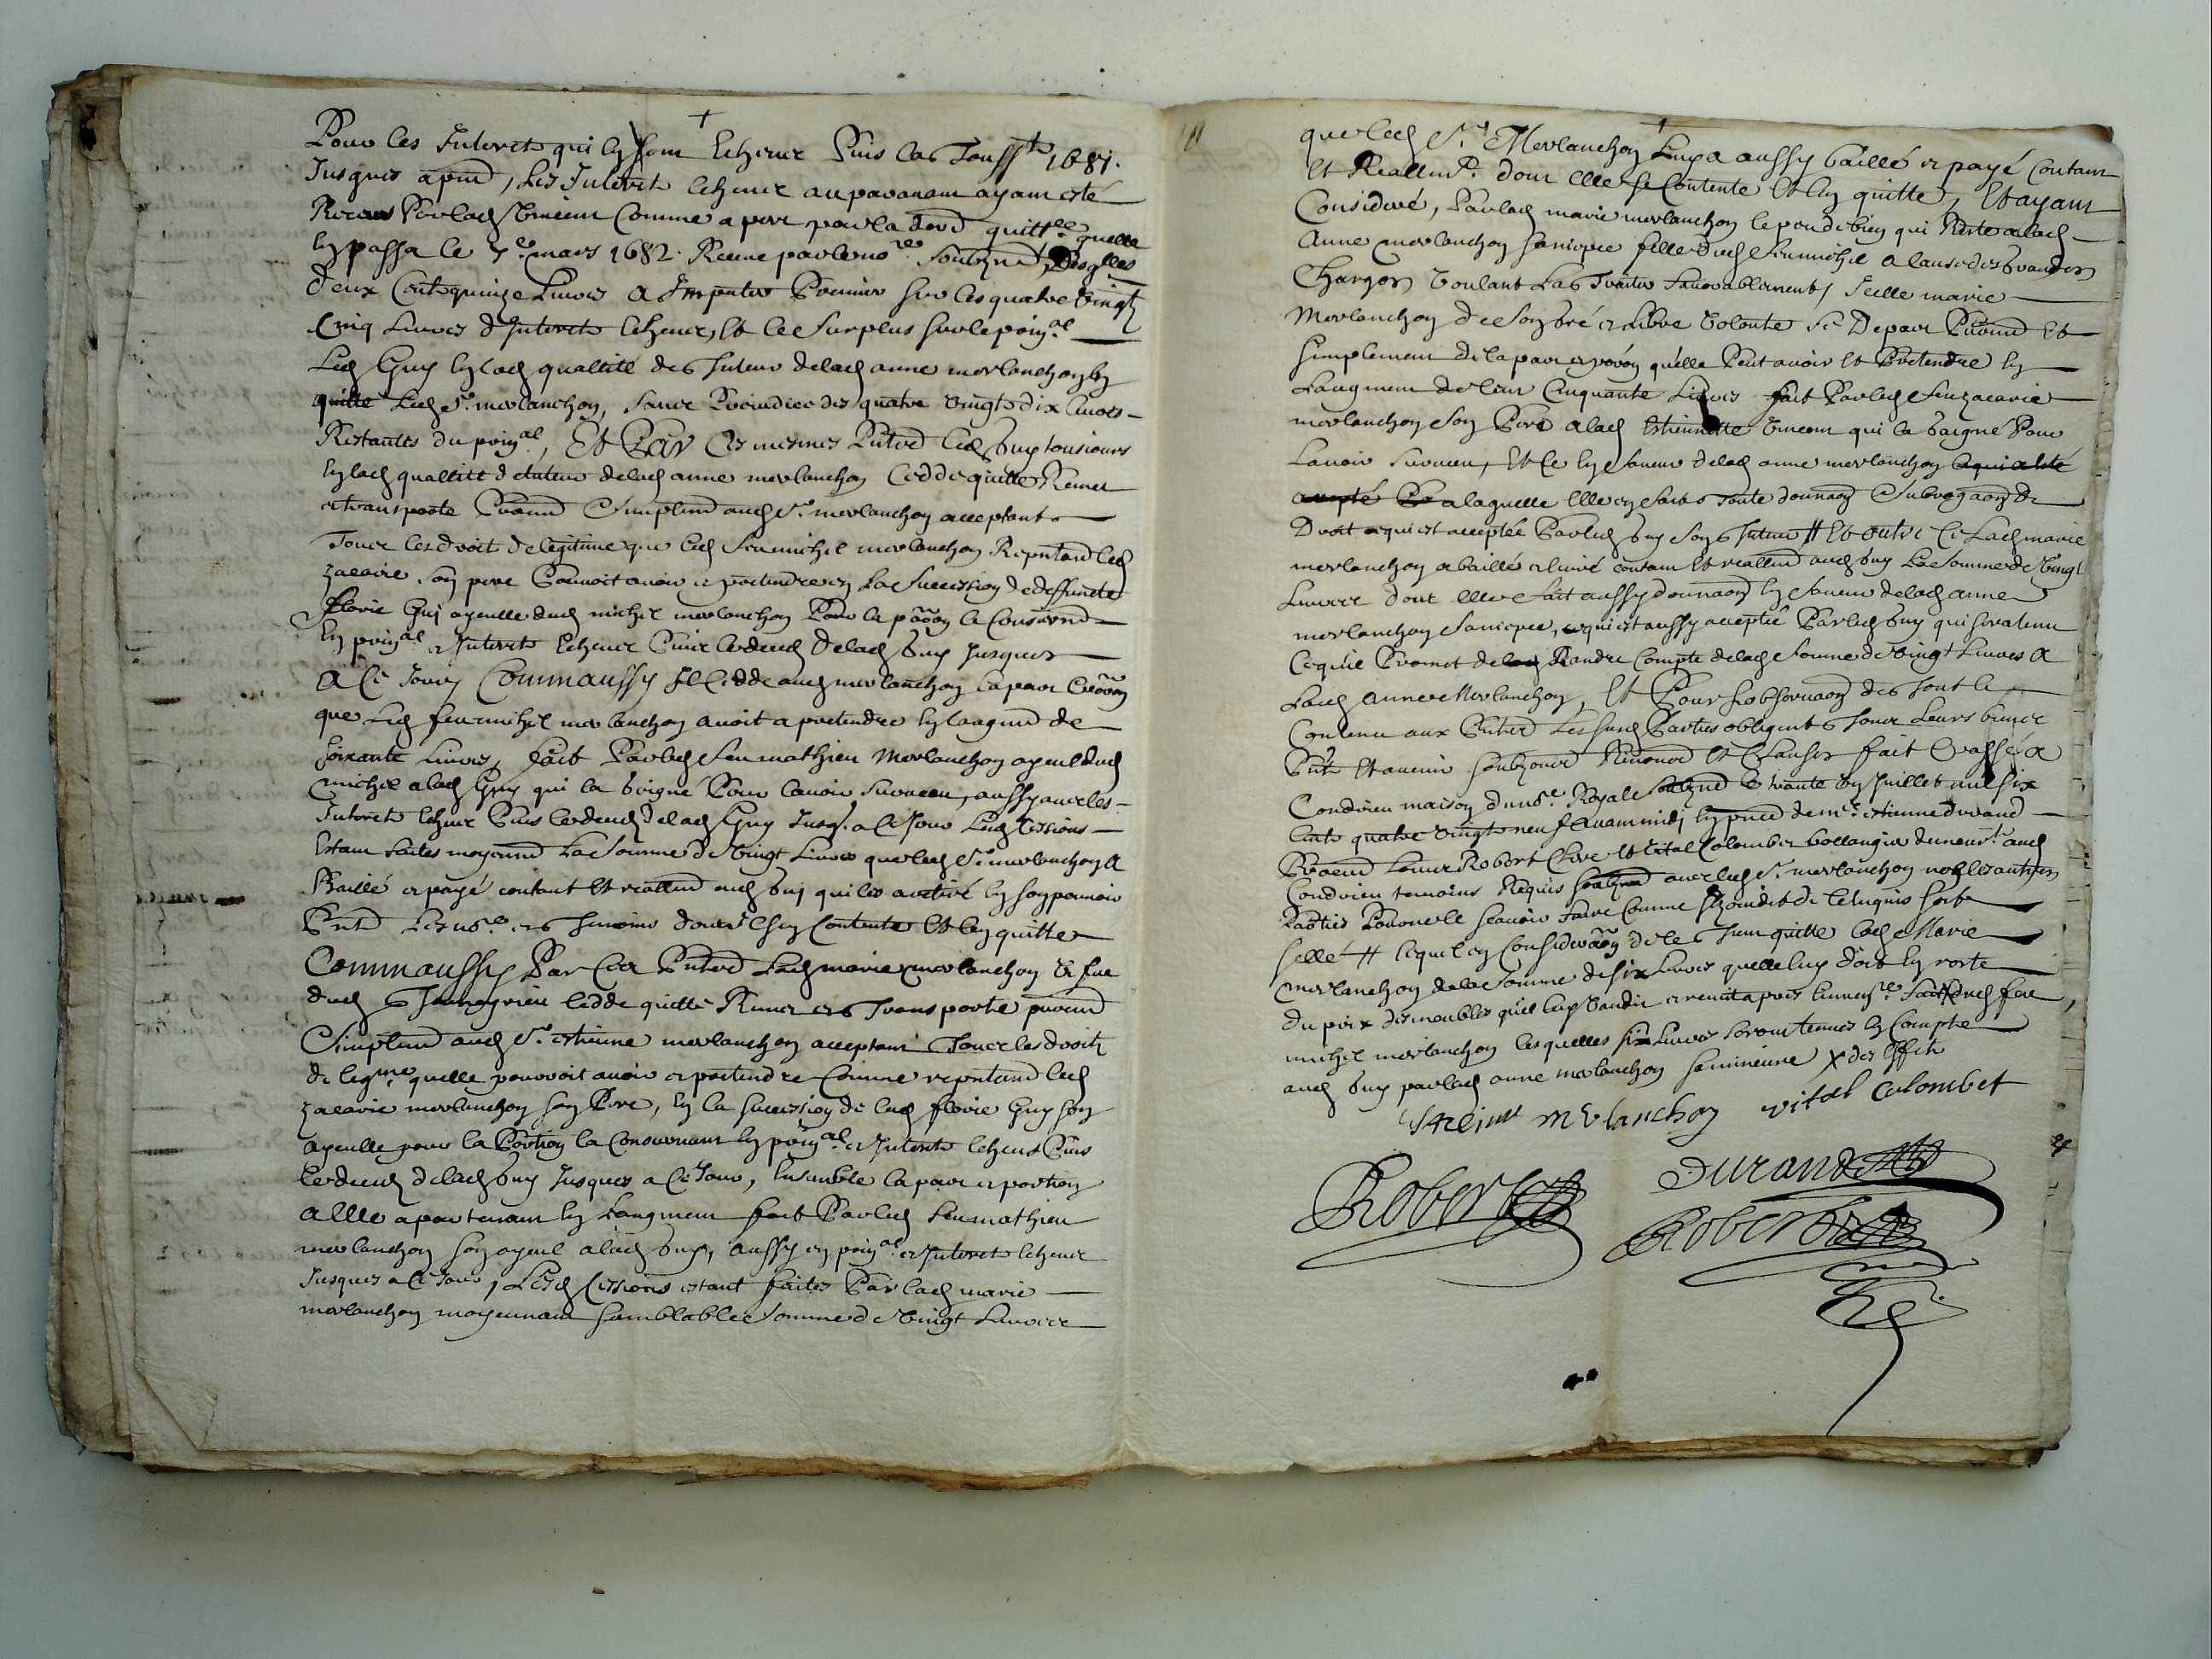 Pour les Interets qui en sont Escheuz Puis la Toussts 1681.
Jusques a pnt, Les Interets escheuz auparavant ayant esté
Receus Par lad Vincent Comme a pert par la dere quittce quelle
en passa le 7e mars 1682. Receue par le nore Soubzné, Desqlles
deux Cents quinze Livres a Imputer Premier sur les quatre Vingtz
Cinq Livres d'Interets escheuz, et le surplus sur le prinal
Led Guy en lad quallité de Tuteur de lad anne merlanchon en
quitte Led Sr merlanchon, sans Preiudice des quatre vingts dix livres
Restants du prinal, Et Par Ces mesmes Pntes led Guy tousiours
en lad quallité de tuteur de lad anne merlanchon Cedde quitte Remet
et transporte Simplemt aud Sr merlanchon acceptant
Tous les droits de legitime que led feu michel merlanchon Repntand led
zacarie son pere Pouvoit avoir et pretendre en La Succession de deffuncte
florie Guy ayeulle dud michel merlanchon Pour la portion le Consernd
en prinal et Interets Escheuz Puis le deces de lad Guy Jusques
A Ce Jourd Comm aussy Il Cedde aud merlanchon la part et portion
que Led feu michel merlanchon avoit a pretendre en l'augmt de
soixante Livres, fait Par led feu mathieu Merlanchon ayeul dud
michel a lad Guy qui la Gaigné Pour l'avoir survecu, aussy avec les
Interets escheuz Puis le deces de lad Guy Jusq. a Ce Jour Lesd Cessions
Estant faites moyennt La Somme de Vingt Livres que led Sr merlanchon A
Baillé et payé contant et reallemt aud Guy qui les a retiré en son pouvoir
Pnts Les nore et Tesmoins dont Il se Contente Et len quitte
Comm aussy Par Ces Pntes Lad marie merlanchon
dud cedde quitte Remet et Transporte
Simplemt aud Sr estienne merlanchon acceptant Tous les droits
de legme quelle pouvoit avoir et pretendre Comme repntand led
zacarie merlanchon son Pere, en la succession de lad florie Guy son
ayeulle pour la Portion la Consernant en prinal et Interets escheus Puis
le deces de lad Guy Jusques a Ce Jour, Ensemble la part et portion
a Elle apartenant en l'augment fait Par led feu mathieu
merlanchon son ayeul a lad Guy, aussy en prinal et Interets escheuz
Jusques a Ce Jour, Lesd Cessions estant faites Par lad marie
merlanchon moyennant semblable somme de Vingt Livres
que led Sr Merlanchon Luy a aussy baillé et payé Contant
et Reallemt dont elle se Contente Et len quitte, Et ayant
Consideré, Par lad marie merlanchon le peu de bien qui Reste a lad
Anne merlanchon sa niepce fille dud feu michel a Cause des grandes
Charges Voulant La Traiter favorablement, Icelle marie
Merlanchon de son gré et Libre Volonté se Depart Puremt et
simplement de la part et portion quelle Peut avoir Et Pretendre en
L'augment de Cent Cinquante Livres fait Par led feu zacarie
merlanchon son Pere a lad Estiennette Vincent qui la Gaigné Pour
L'avoir survecu, Et ce en faveur de lad anne merlanchon
a laquelle elle en fait Toute donnaon Subrogaon de
Droit ce qui est accepté Par led Guy son Tuteur # Et outre Ce Lad marie
merlanchon a baillé et livré contant et reallemt aud Guy La Somme de Vingt
Livres dont elle fait aussy donnaon en faveur de lad anne
merlanchon sa niepce, ce qui est aussy accepté Par led Guy qui sera tenu
Ce quil Promet de Randre Compte de lad Somme de Vingt Livres A
Lad Anne Merlanchon, Et Pour L'observaon de Tout le
Contenu aux Pntes Lesd Parties obligent Tous Leurs biens
Pnts Et avenir Et Clauses fait et Passé A
Condrieu maison du nore Royal Soubzné Le Trante un Juillet mil six
Cents quatre vingts neuf Avant midi en pnce de me estienne durand
Robert Clerc et Vital Colombet boullanger demeurts aud
Condrieu temoins Requis Soubznés avec led Sr merlanchon non les autres
Parties Pour ne le scavoir faire Comme Ilz ont dit de Ce Enquis soit
scellé # lequel en Consideraon de Ce Tient quitte lad Marie
Merlanchon de la Somme de six Livres quelle luy doit en reste
du prix des meubles quil luy Vandit et remit apres Linvenre fait dud feu
michel merlanchon lesquelles six Livres seront tenues en Compte
aud Guy par lad anne merlanchon sa mineure X des Effets
Estienne merlanchon vital Colombet
Robert Durand
Robert